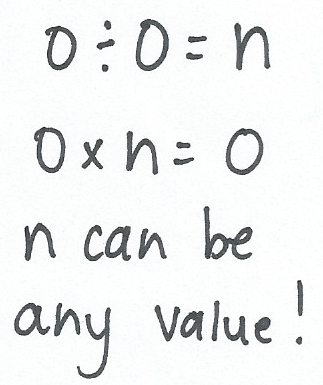 0 ÷ 0 = n
0 × n = 0
n can be
any value!